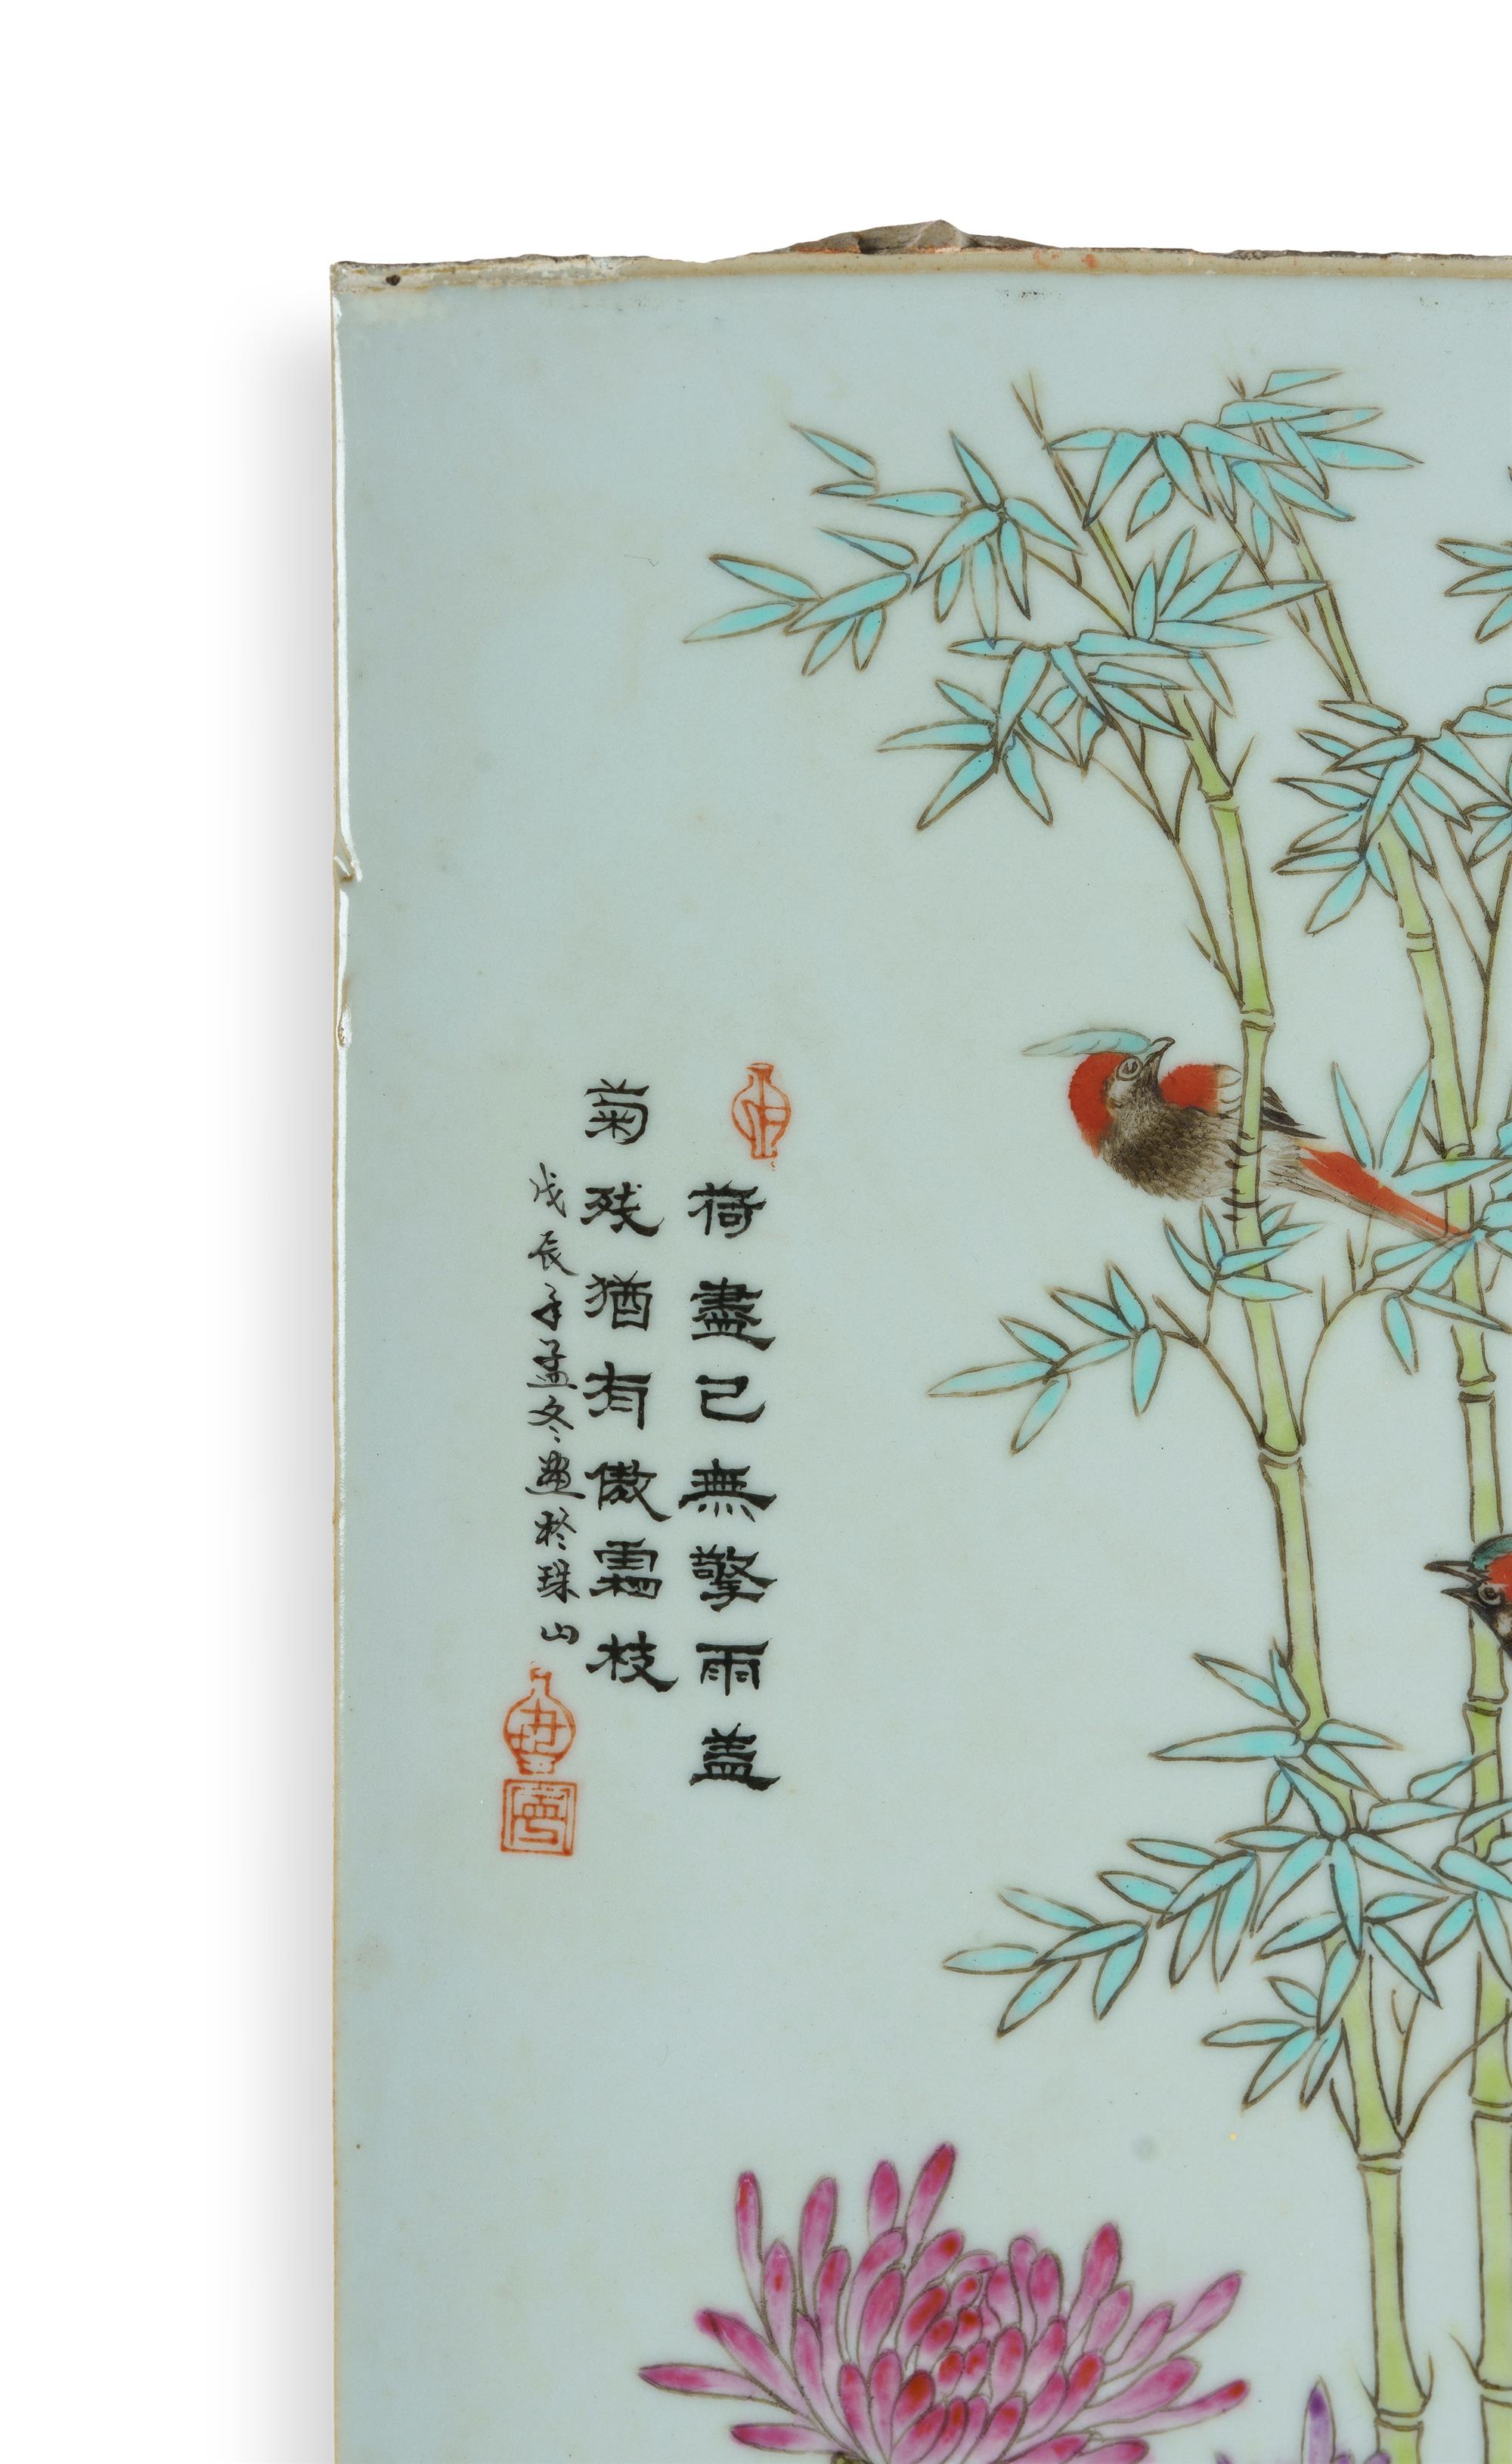 荷盡已無擎雨蓋
菊殘猶有傲霜枝
戊辰年孟冬畫於珠山